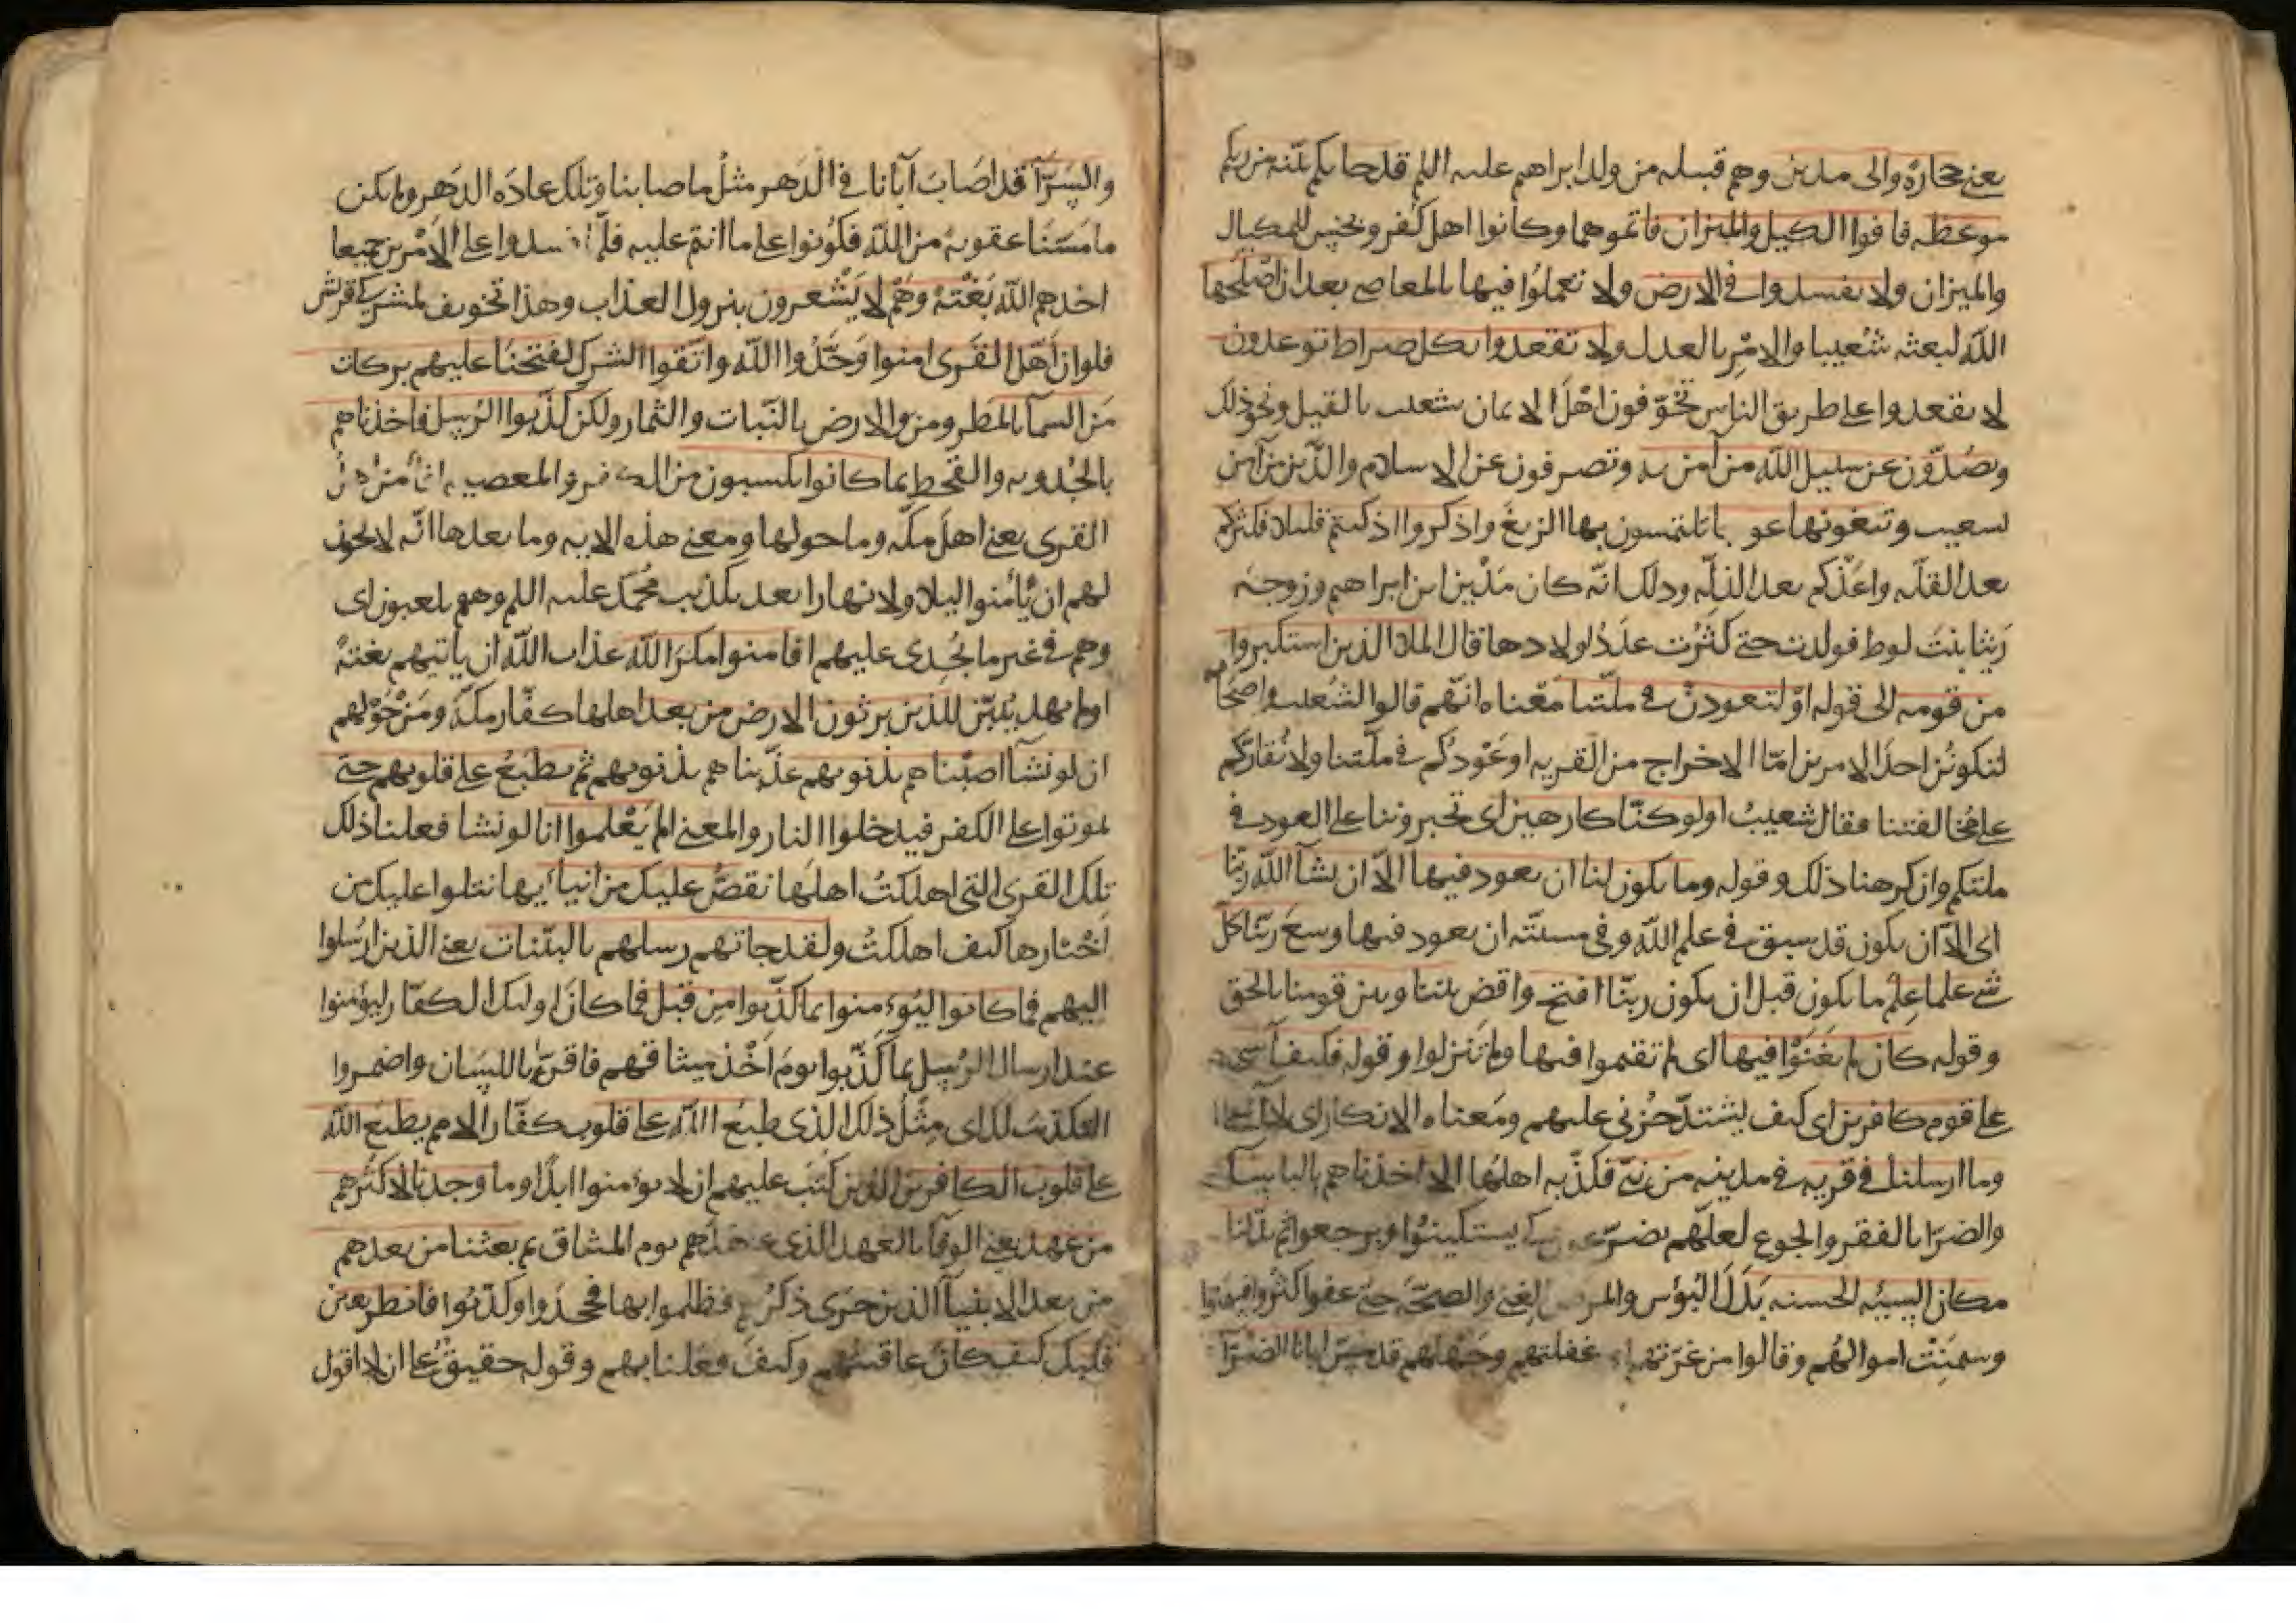 يعني حجارة والى مدين وهم قبيله من ولد ابراهيم عليه السلم قد جاتكم بينه من ربكم
موعظه فاوفوا الكيل والميزان فاتموهما وكانوا اهل كفر وبخس للمكيال
والميزان ولا تفسدوا في الارض ولا تعملوا فيها بالمعاصي بعد ان اصلحها
الله لبعثه شعيبا والامر بالعدل ولا تقعدوا بكل صراط توعدون
لا تقعدوا على طريق الناس تخوفون اهل الايمان بشعيب بالقتل ونحو ذلك
وتصدون عن سبيل الله من آمن به وتصرفون عن الاسلام والدين من آمن
لسعيب وتبغونها عوجا تلتمسون بها الزيغ واذكروا اذ كنتم قليلا فكثركم
بعد القله واعزكم بعد الذله وذلك انه كان مدين ابن ابراهيم وزوجته
ريثا بنت لوط فولدت حتى كثرت عدد اولادها قال الملا الذين استكبروا
من قومه الى قوله او لتعودن في ملتنا معناه انهم قالوا لشعيب واصحابه
لتكونن احد الامرين اما الاخراج من القريه او عودكم في ملتنا ولا نقاركم
على مخالفتنا فقال شعيب اولو كنا كارهين اى تجبروننا على العود في
ملتكم وان كرهنا ذلك وقوله وما يكون لنا ان نعود فيها الا ان يشآ الله ربنا
اى الا ان يكون قد سبق في علم الله وفي مشيته ان نعود فيها وسع ربنا كل
شي علما علم ما يكون قبل ان يكون ربنا افتح واقض بيننا وبين قومنا بالحق
وقوله كان لم يغنوا فيها اى لم تقيموا فيها ولم تنزلوا وقوله فكيف آسى
على قوم كافرين اى كيف يشتد حزني عليهم ومعناه الانكار اى لا آسى
وما ارسلنا في قريه في مدينه من نبي فكذبه اهلها الا اخذناهم بالباسا
والضرا بالفقر والجوع لعلهم يضرعون كي يستكينوا ويرجعوا ثم بدلنا
مكان السيئه الحسنه بدل البؤس والمرض الغنى والصحة حتى عفوا كثروا
وسمنت اموالهم وقالوا من غرتهم غفلتهم وجهلهم قد مس ابانا الضرآ
والسرآ قد اصاب آبانا في الدهر مثل ما اصابنا وتلك عادة الدهر ولم يكن
ما مسنا عقوبه من الله فكونوا على ما انتم عليه فلما فسدوا على الامرين جميعا
اخذهم الله بغتة وهم لا يشعرون بنزول العذاب وهذا تخويف لمشركي قريش
فلو ان اهل القرى امنوا وحدوا الله واتقوا الشرك لفتحنا عليهم بركات
من السمآ بالمطر ومن والارض بالنبات والثمار ولكن كذبوا الرسل فاخذناهم
بالجدوبه والقحط بما كانوا يكسبون من الكفر والمعصيه افامن اهل
القرى يعني اهل مكه وما حولها ومعنى هذه الايه وما بعدها انه لا يجوز
لهم ان يأمنوا ليلا ولا نهارا بعد تكذيب محمد عليه السلم وهم يلعبون اى
وهم في غير ما يجدى عليهم افامنوا مكر الله عذاب الله ان ياتيهم بغتة
اولم يهد يبين للذين يرثون الارض من بعد اهلها كفار مكة ومن حولهم
ان لو نشآ اصبناهم بذنوبهم عذبناهم بذنوبهم ثم نطبع على قلوبهم حتى
يموتوا على الكفر فيدخلوا النار والمعنى الم يعلموا انا لو نشا فعلنا ذلك
تلك القرى التى اهلكت اهلها نقص عليك من انبائها نتلوا عليك من
اخبارها كيف اهلكت ولقد جاتهم رسلهم بالبينات يعني الذين ارسلوا
اليهم فما كانوا ليؤمنوا بما كذبوا من قبل فما كان اوليك الكفار ليؤمنوا
عند ارسال الرسل بما كذبوا يوم اخذ ميثاقهم فاقروا باللسان واضمروا
التكذيب كذلك اى مثل ذلك الذى طبع الله على قلوب كفار الامم يطبع الله
على قلوب الكافرين الذين كتب عليهم ان لا يؤمنوا ابدا وما وجدنا لاكثرهم
من عهد يعني الوفآ بالعهد الذى عاهدهم يوم الميثاق ثم بعثنا من بعدهم
من بعد الانبيآ الذين جرى ذكرهم فظلموا بها فجحدوا وكذبوا فانظر بعين
قلبك كيف كان عاقبتهم وكيف فعلنا بهم وقوله حقيق على ان لا اقول